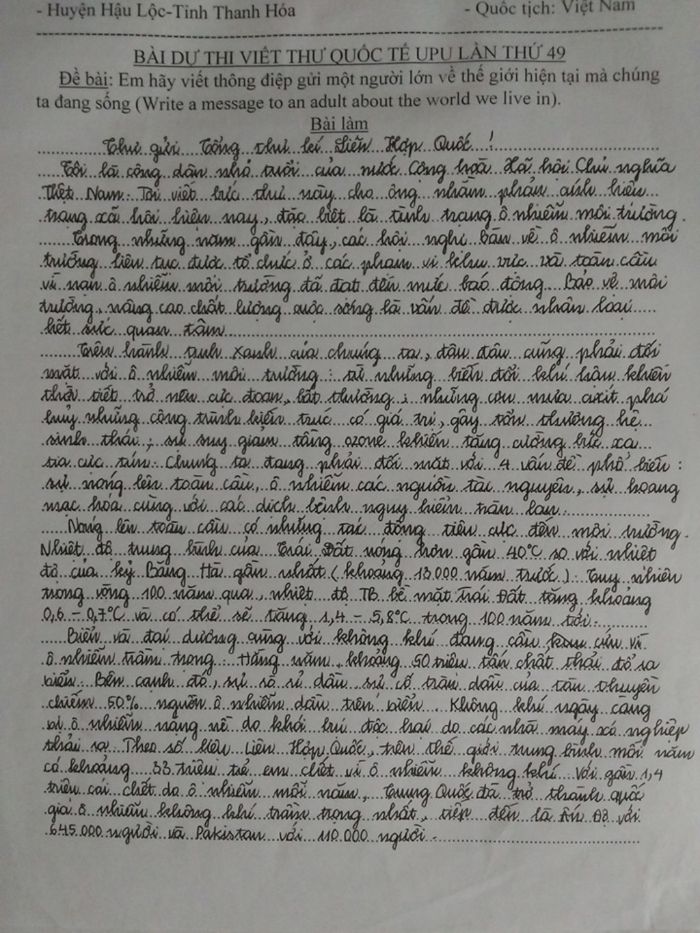 - Huyện Hậu Lộc-Tỉnh Thanh Hóa
- Quốc tịch: Việt Nam
BÀI DỰ THI VIẾT THƯ QUỐC TẾ UPU LẦN THỨ 49
Đề bài: Em hãy viết thông điệp gửi một người lớn về thế giới hiện tại mà chúng
ta đang sống (Write a message to an adult about the world we live in).
Bài làm
Thư gửi Tổng thư kí Liên Hợp Quốc !
Tôi là công dân nhỏ tuổi của nước Cộng hoà Xã hội Chủ nghĩa
Việt Nam. Tôi viết bức thư này cho ông nhằm phản ánh hiện
trạng xã hội hiện nay, đặc biệt là tình trạng ô nhiễm môi trường.
Trong những năm gần đây, các hội nghị bàn về ô nhiễm môi
trường liên tục được tổ chức ở các phạm vi khu vực và toàn cầu
vì nạn ô nhiễm môi trường đã đạt đến mức báo động. Bảo vệ môi
trường, nâng cao chất lượng cuộc sống là vấn đề được nhân loại
hết sức quan tâm
Trên hành tinh xanh của chúng ta, đâu đâu cũng phải đối
mặt với ô nhiễm môi trường: từ những biến đổi khí hậu khiến
thời tiết trở nên cực đoan, bất thường; những cơn mưa axit phá
huỷ những công trình kiến trúc có giá trị, gây tổn thương hệ
sinh thái; sự suy giảm tầng ozone khiến tăng cường bức xạ
tia cực tím. Chúng ta đang phải đối mặt với 4 vấn đề phổ biến:
sự nóng lên toàn cầu, ô nhiễm các nguồn tài nguyên, sự hoang
mạc hóa cùng với các dịch bệnh nguy hiểm tràn lan.
Nóng lên toàn cầu có những tác động tiêu cực đến môi trường.
Nhiệt độ trung bình của Trái Đất nóng hơn gần 40°C so với nhiệt
độ của kỷ Băng Hà gần nhất (khoảng 13.000 năm trước). Tuy nhiên
trong vòng 100 năm qua, nhiệt độ TB bề mặt Trái Đất tăng khoảng
0,6 - 0,7°C và có thể sẽ tăng 1,4 - 5,8°C trong 100 năm tới.
Biển và đại dương cùng với không khí đang cầu cứu vì
ô nhiễm trầm trọng. Hằng năm, khoảng 50 triệu tấn chất thải đổ ra
biển. Bên cạnh đó, sự rò rỉ dầu, sự cố tràn dầu của tàu thuyền
chiếm 50% nguồn ô nhiễm dầu trên biển. Không khí ngày càng
bị ô nhiễm nặng nề do khói bụi độc hại do các nhà máy xí nghiệp
thải ra. Theo số liệu Liên Hợp Quốc, trên thế giới trung bình mỗi năm
có khoảng 33 triệu trẻ em chết vì ô nhiễm không khí. Với gần 1,4
triệu cái chết do ô nhiễm mỗi năm, Trung Quốc đã trở thành quốc
gia ô nhiễm không khí trầm trọng nhất, tiếp đến là Ấn Độ với
645.000 người và Pakistan với 110.000 người.